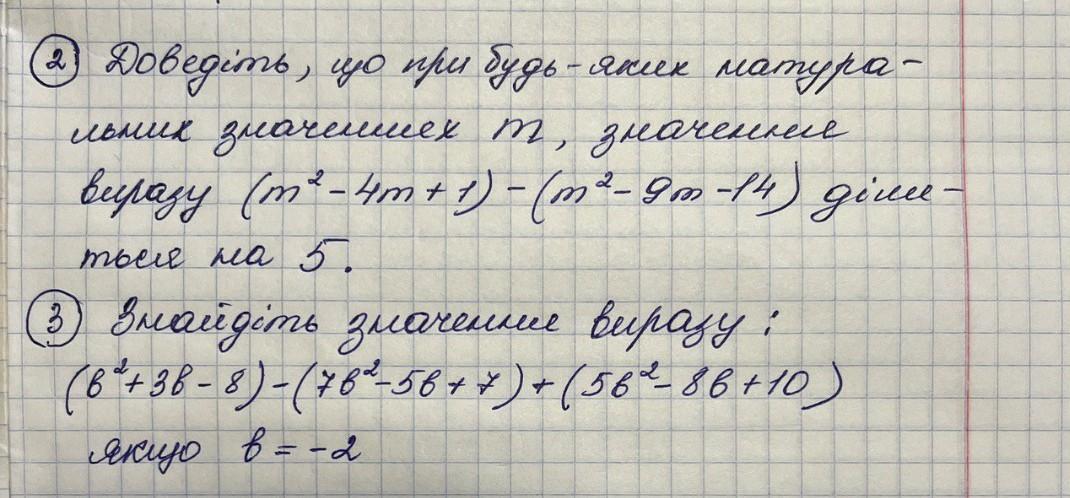 ② Доведіть, що при будь-яких натура-
льних значеннях m, значення
виразу (m² - 4m + 1) - (m² - 9m - 14) діли-
ться на 5.
③ Знайдіть значення виразу:
(в² + 3в - 8) - (7в² - 5в + 7) + (5в² - 8в + 10)
якщо в = -2